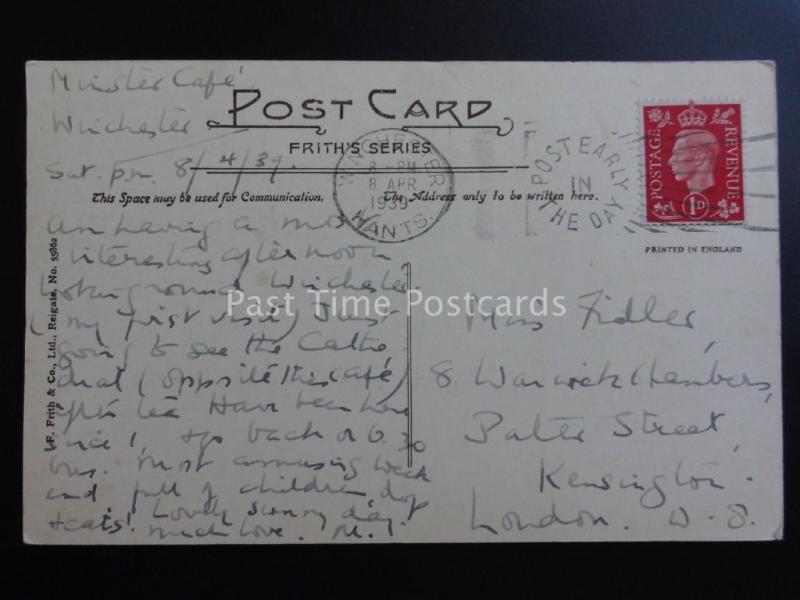 Minster Café
Winchester
Sat. pm. 8/4/39.
POST CARD
FRITH'S SERIES
This Space may be used for Communication.
The Address only to be written here.
WINCHESTER
8 - PM
8 APR
1939
HANTS.
POST EARLY
IN
THE DAY
POSTAGE
REVENUE
1D
PRINTED IN ENGLAND
F. Frith & Co., Ltd., Reigate. No. 55862
Am having a most
interesting afternoon
looking round Winchester
(my first visit) Just
going to see the Cathe
dral (opposite this café)
after tea Have been here
since 1, & go back on 6.30
bus. Most amusing week
end full of children dogs
& cats! Lovely sunny day.
Much love. M.
Miss Fidler,
8 Warwick Chambers,
Pater Street,
Kensington.
London. W. 8.
Past Time Postcards